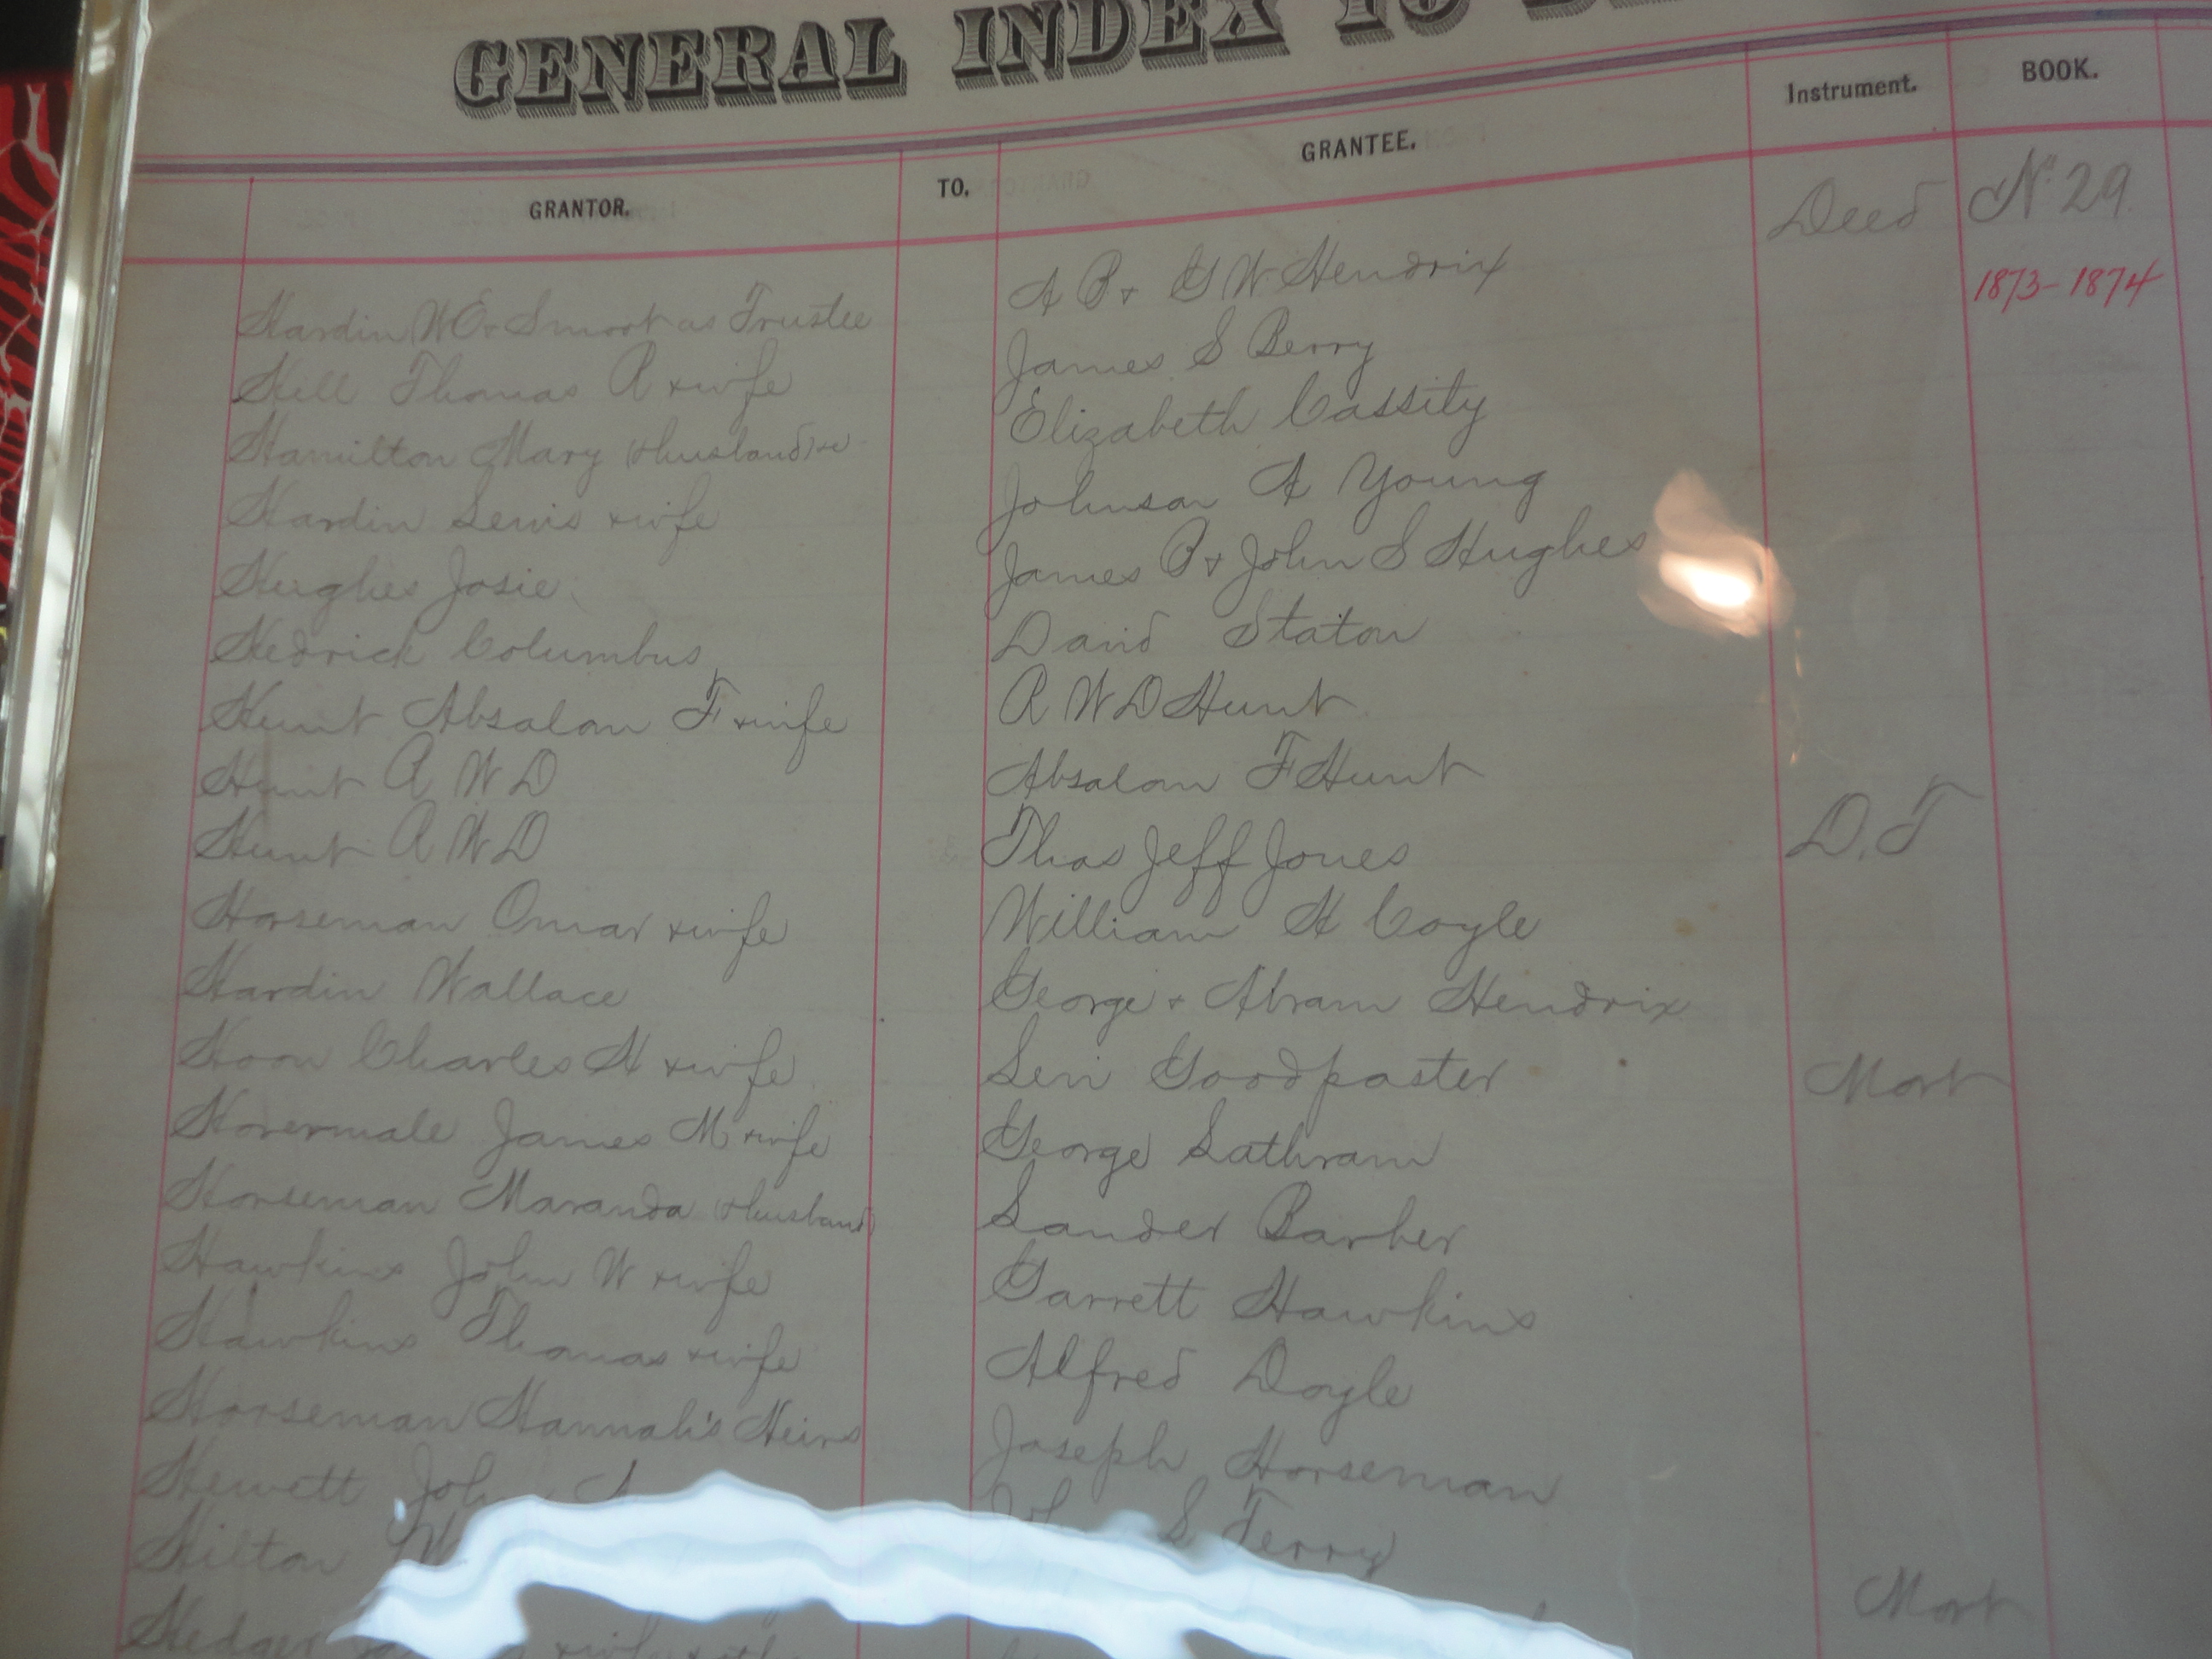 GENERAL INDEX TO
GRANTOR. TO. GRANTEE. Instrument. BOOK.
Deed No 29
1873-1874
Hardin W E & Smoot as Trustee A B & G W Hendrix
Hill Thomas R & wife James S Berry
Hamilton Mary (& husband) &c Elizabeth Cassity
Hardin Lewis & wife Johnson A Young
Hughes Josie James P & John S Hughes
Hedrick Columbus David Staton
Hunt Absalom F & wife A W D Hunt
Hunt A W D Absalom F Hunt
Hunt A W D Thos Jeff Jones D.T
Horseman Omar & wife William H Coyle
Hardin Wallace George & Abram Hendrix
Hoon Charles H & wife Levi Goodpaster Mort
Hovermale James M & wife George Lathram
Horseman Maranda (& husband) Sander Barber
Hawkins John W & wife Garrett Hawkins
Hawkins Thomas & wife Alfred Doyle
Horseman Hannah's Heirs Joseph Horseman
Hewett S Terry
Hilton Mort
Hedger